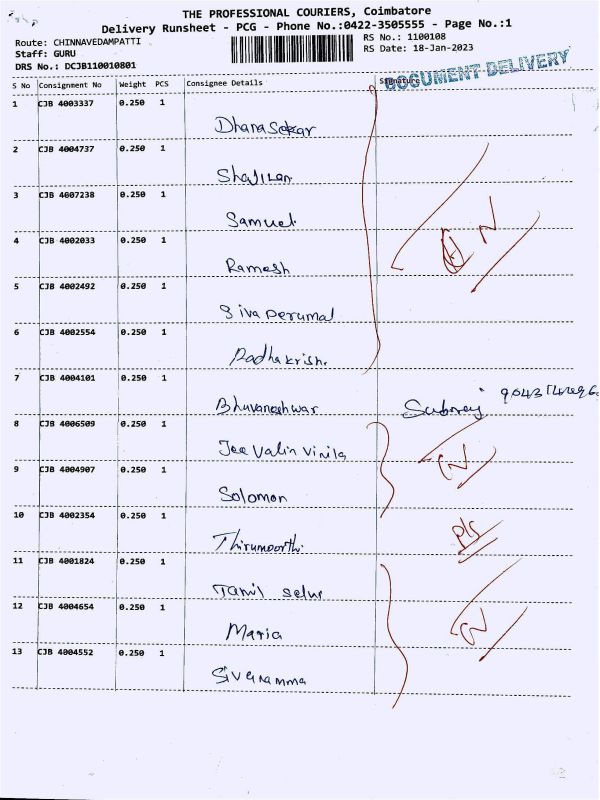 THE PROFESSIONAL COURIERS, Coimbatore
Delivery Runsheet - PCG - Phone No.:0422-3505555 - Page No.:1
Route: CHINNAVEDAMPATTI RS No.: 1100108
Staff: GURU RS Date: 18-Jan-2023
DRS No.: DCJB110010801
DOCUMENT DELIVERY
S No Consignment No Weight PCS Consignee Details Signature
1 CJB 4003337 0.250 1
Dhanasekar
2 CJB 4004737 0.250 1
3 CJB 4007238 0.250 1
Samuel
N
4 CJB 4002033 0.250 1
Ramesh
5 CJB 4002492 0.250 1
Sivaperumal
6 CJB 4002554 0.250 1
Radhakrish
7 CJB 4004101 0.250 1
Bhuvaneshwar
8 CJB 4006509 0.250 1
9 CJB 4004907 0.250 1
Solomon
10 CJB 4002354 0.250 1
Thirumoorthi
11 CJB 4001824 0.250 1
Tamil Selvi
12 CJB 4004654 0.250 1
Maria
13 CJB 4004552 0.250 1